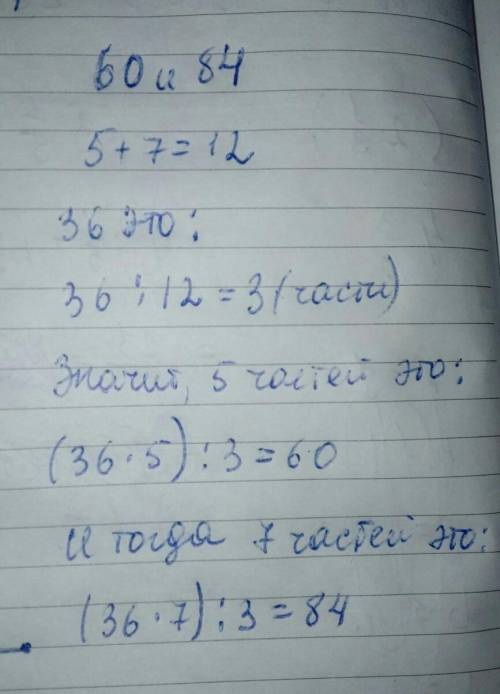 60 и 84
5+7=12
36 это:
36:12=3(части)
Значит, 5 частей это:
(36·5):3=60
И тогда 7 частей это:
(36·7):3=84